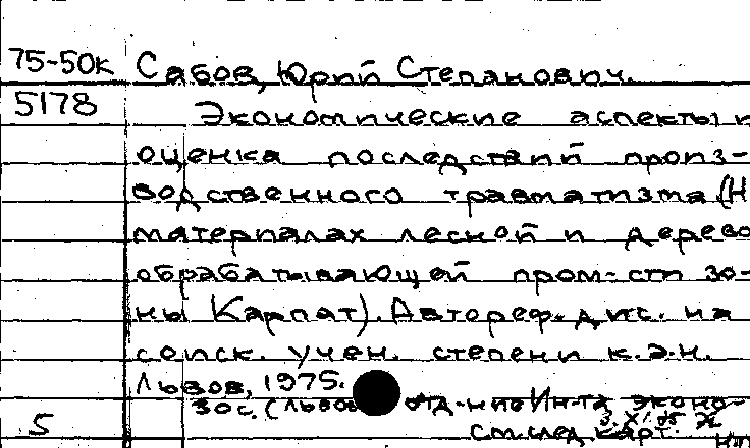 75-50к Сабов, Юрий Степанович.
5178 Экономические аспекты и
оценка последствий произ-
водственного травматизма (Н
материалах лесной и дерево
обрабатывающей пром-сти зо-
ны Карпат). Автореф. дис. на
соиск. учен. степени к.э.н.
Львов, 1975.
30 с. (Львов отд-ние Ин-та эконо-
5 См. след. карт.